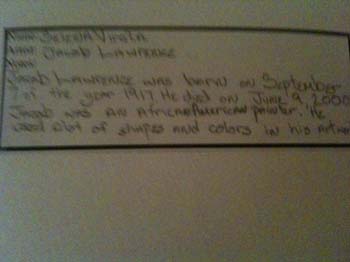 Selena
Jacob Lawrence
Jacob Lawrence was born on September
7 of the year 1917. He died on June 9, 2000
Jacob was an African American painter. He
used alot of shapes and colors in his